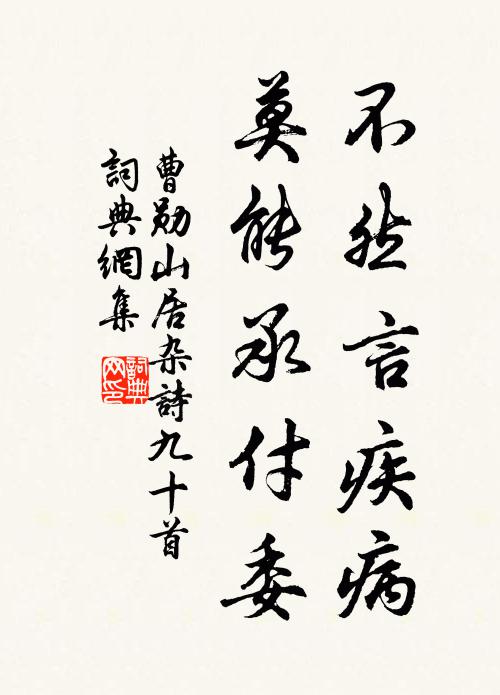 不然言疾病
莫能承付委
曹勋山居杂詩九十首
詞典網集
詞典
网印